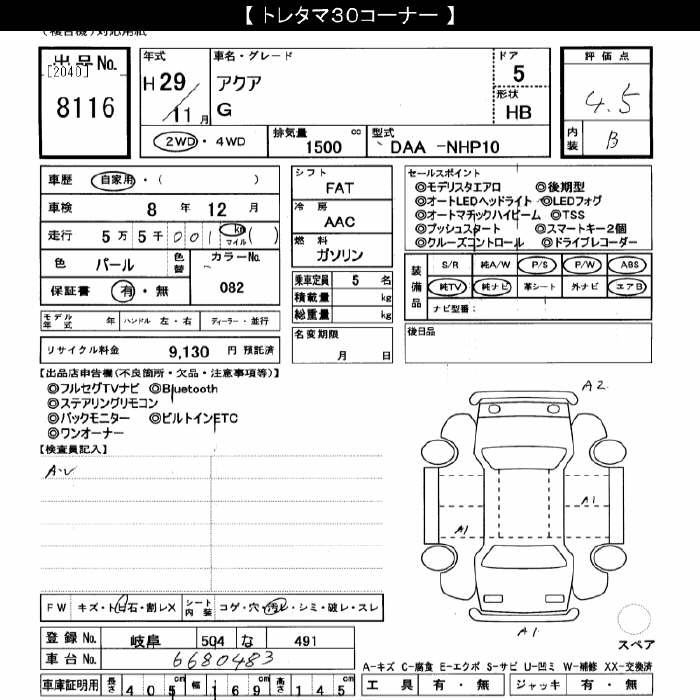 【 トレタマ30コーナー 】
出品No.
[2040]
8116
年式
H 29
11 月
車名・グレード
アクア
G
ドア
5
形状
HB
評価点
4.5
内装
B
2WD・4WD
排気量
1500 cc
型式
DAA -NHP10
車歴 自家用・( )
車検 8 年 12 月
走行 5 万 5 千 001 km マイル ( )
色 パール
色替
カラーNo.
082
保証書 有・無
シフト
FAT
冷房
AAC
燃料
ガソリン
乗車定員 5 名
積載量 kg
総重量 kg
セールスポイント
◎モデリスタエアロ ◎後期型
◎オートLEDヘッドライト ◎LEDフォグ
◎オートマチックハイビーム ◎TSS
◎プッシュスタート ◎スマートキー2個
◎クルーズコントロール ◎ドライブレコーダー
装備品
S/R 純A/W P/S P/W ABS
純TV 純ナビ 革シート 外ナビ エアB
ナビ型番:
モデル年式 年 ハンドル 左・右 ディーラー・並行
名変期限
月 日
後日品
リサイクル料金 9,130 円 預託済
【出品店申告欄(不良箇所・欠品・注意事項等)】
◎フルセグTVナビ ◎Bluetooth
◎ステアリングリモコン
◎バックモニター ◎ビルトインETC
◎ワンオーナー
【検査員記入】
A2
A1
A1
A1
FW キズ・ト石・割レX シート内装 コゲ・穴・汚レ・シミ・破レ・スレ
登録No. 岐阜 504 な 491
車台No. 6680483
スペア
A-キズ C-腐食 E-エクボ S-サビ U-凹ミ W-補修 XX-交換済
車庫証明用 長さ 405 cm 幅 169 cm 高さ 145 cm
工具 有・無 ジャッキ 有・無